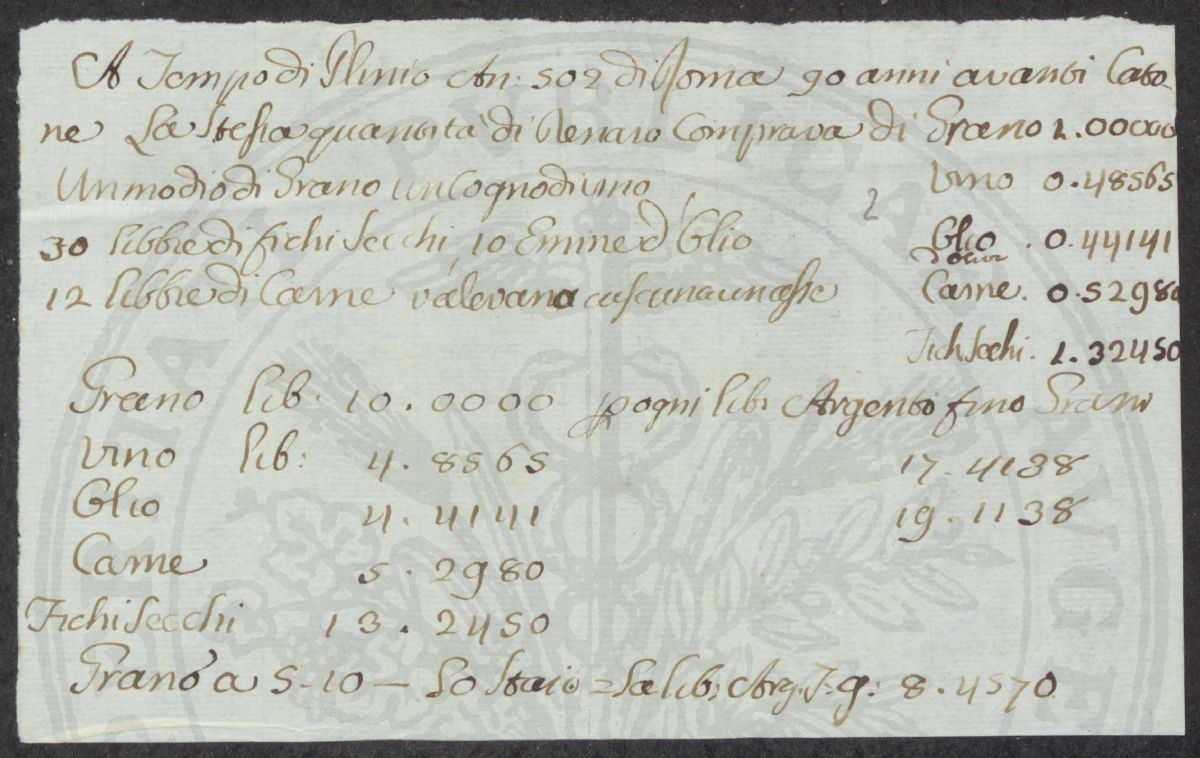 A Tempo di Plinio An: 502 di Roma 90 anni avanti Cato-
ne La Stessa quantità di Denaro Comprava di Grano 1.00000
Un modio di Grano un Cogno di vino, Vino 0.48565
2
30 libbre di fichi Secchi, 10 Emine d'Olio Olio . 0.44141
12 libbre di Carne valevano ciascuna un asse Carne. 0.52980
Fichi Secchi. 1.32450
Grano lib: 10.0000 p ogni lib: Argento fino Grano
Vino lib: 4.8565 17.4138
Olio 4.4141 19.1138
Carne 5.2980
Fichi Secchi 13.2450
Grano a 5-10 — Lo Staio = La lib: Arg. F. g: 8.4570